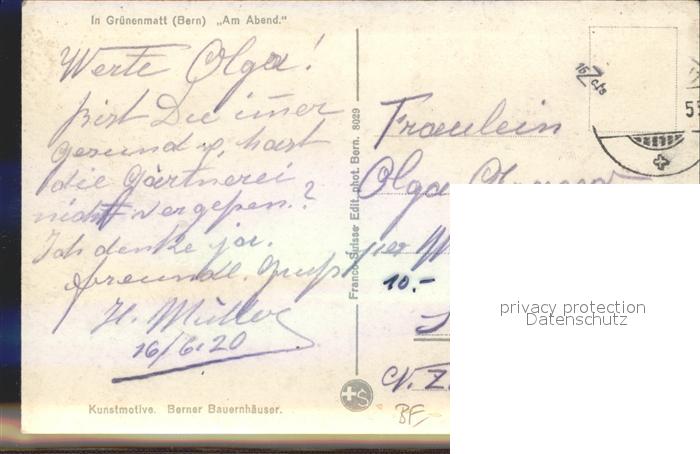 In Grünenmatt (Bern) „Am Abend."
Werte Olga!
bist Du im̄er
gesund u, hast
die Gärtnerei
nicht vergeßen?
Ich denke ja.
freundl. Gruß
H. Müller
16/6.20
Kunstmotive. Berner Bauernhäuser.
Franco-Suisse Edit. phot. Bern. 8029
Fraulein
Olga
per
10.-
N.Z.
BE
privacy protection
Datenschutz